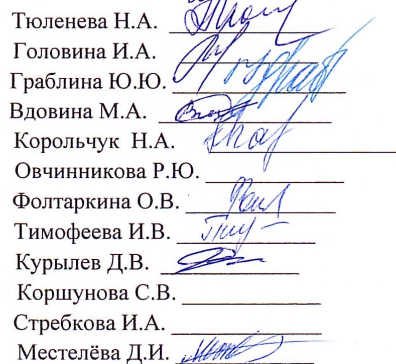 Тюленева Н.А.
Головина И.А.
Граблина Ю.Ю.
Вдовина М.А.
Корольчук Н.А.
Овчинникова Р.Ю.
Фолтаркина О.В.
Тимофеева И.В.
Курылев Д.В.
Коршунова С.В.
Стребкова И.А.
Местелёва Д.И.